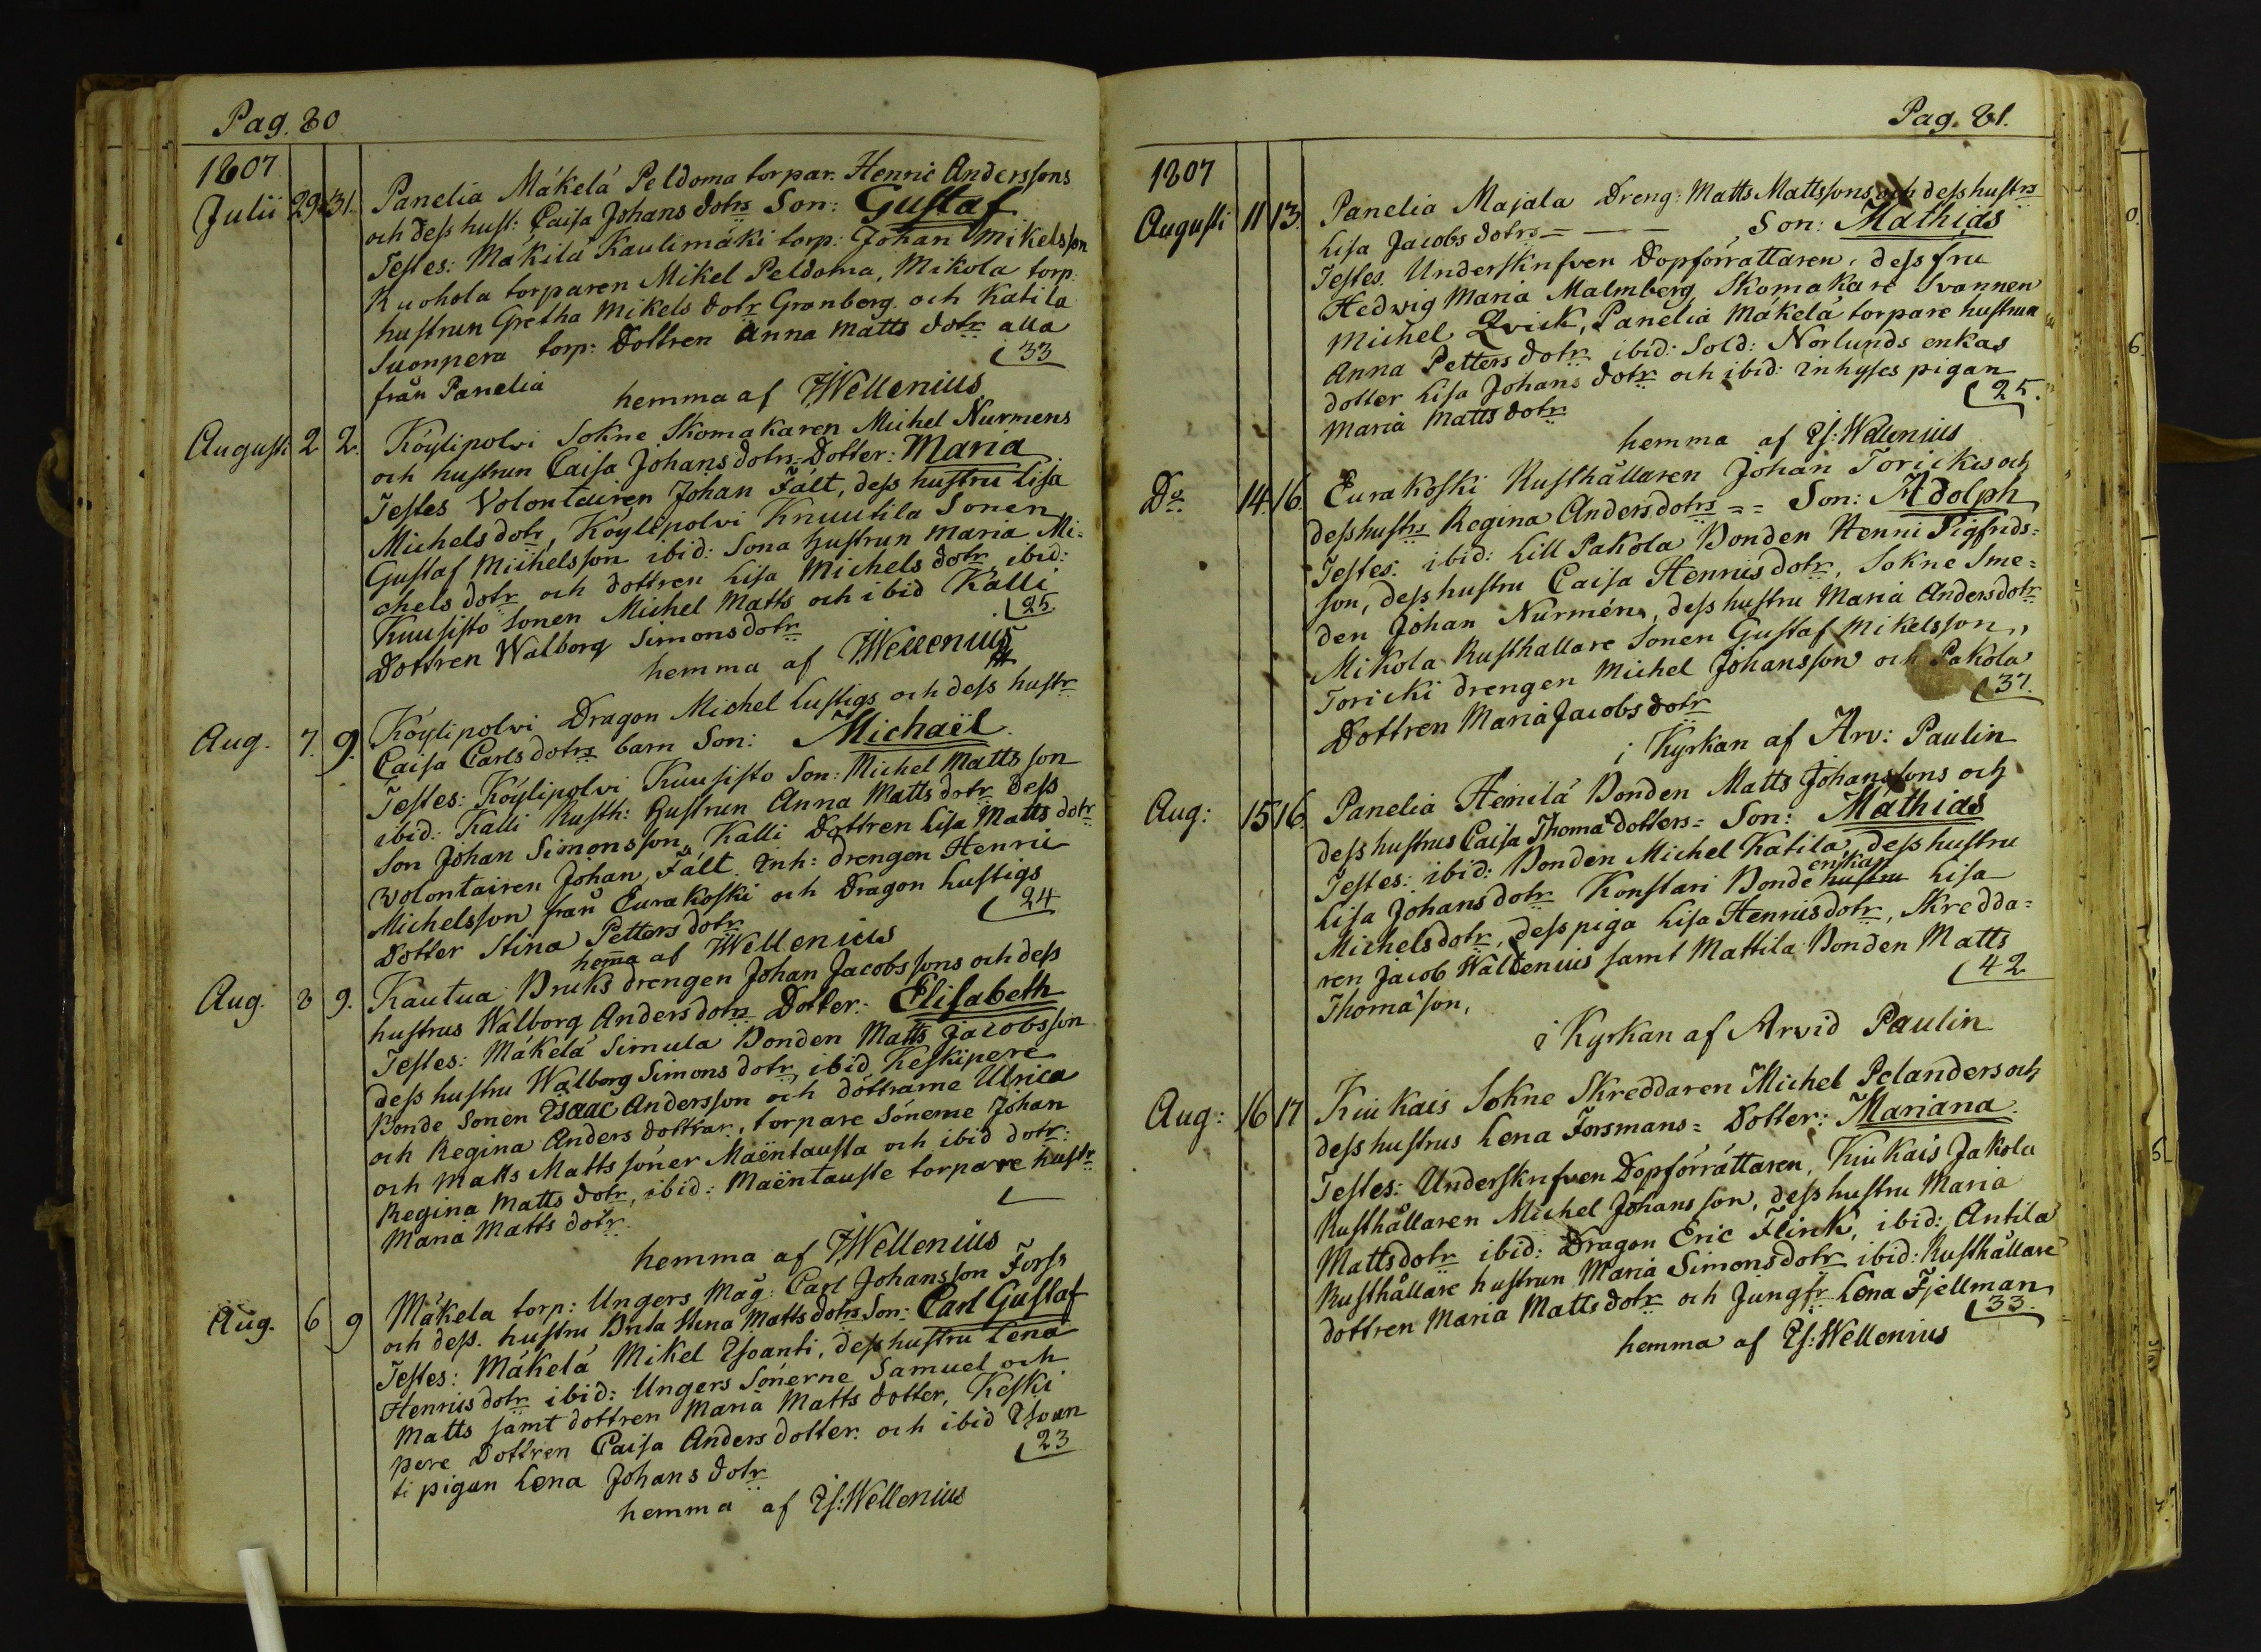 Pag. 80
1807
Julii 29 31. Panelia Mäkelä Peldoma torpar. Henric Anderssons
och dess hust: Caisa Johans dotrs Son: Gustaf
Testes: Mäkilä Kaulimäki torp: Johan Mikelsson
Kuohola torparen Mikel Peldoma, Mikola torp:
hustrun Gretha Mikels dotr Granberg och Katila
Suonpera torp: Dottren Anna Matts dotr alla
från Panelia 33
hemma af Wellenius
Augusti 2 2. Köylipolvi Sokne Skomakaren Michel Nurmens
och hustrun Caisa Johans dotrs Dotter: Maria
Testes Volontairen Johan Fält, dess hustru Lisa
Michels dotr, Köylipolvi Knuutila Sonen
Gustaf Michelsson ibid: Sona hustrun Maria Mi-
chels dotr och dottren Lisa Michels dotr ibid:
Kuusisto Sonen Michel Matts och ibid Kalli
Dottren Walborg Simons dotr 25
hemma af Wellenius
Aug. 7. 9. Köylipolvi Dragon Michel Lustigs och dess hustr
Caisa Carls dotrs barn Son: Michaël
Testes: Köylipolvi Kuusisto Son: Michel Matts son
ibid: Kalli Rusth: hustrun Anna Matts dotr dess
Son Johan Simonsson, Kalli Dottren Lisa Matts dotr
Volontairen Johan Fält. Inh: drengen Henric
Michelsson från Eurakoski och Dragon Lustigs
Dotter Stina Petters dotr 24
hema af Wellenius
Aug. 8 9. Kautua Bruks drengen Johan Jacobssons och dess
hustrus Walborg Anders dotrs Dotter: Elisabeth
Testes: Mäkelä Simula Bonden Matts Jacobsson
dess hustru Walborg Simons dotr, ibid Keskipere
Bonde Sonen Isaac Andersson och döttrarne Ulrica
och Regina Anders dottrar, torpare Sönerne Johan
och Matts Matts söner Maëntausta och ibid dotr:
Regina Matts dotr, ibid: Maëntauste torpare hustr
Maria Matts dotr.
hemma af Wellenius
Aug. 6 9 Mäkela torp: Ungers Måg: Carl Johansson Forss
och dess. hustru Brita Stina Matts dotrs Son: Carl Gustaf
Testes: Mäkelä Mikel Isoanti, dess hustru Lena
Henrics dotr ibid: Ungers Sönerne Samuel och
Matts samt dottren Maria Matts dotter, Keski
pere Dottren Caisa Anders dotter och ibid Isoan
ti pigan Lena Johans dotr 23
hemma af Es: Wellenius
Pag. 81.
1807
Augusti 11 13. Panelia Majala Dreng: Matts Mattssons och dess hustrs
Lisa Jacobs dotrs = — — Son: Mathias
Testes. Underskrifven Dopförrättaren, dess fru
Hedwig Maria Malmberg Skomakare Svannen
Michel Qvick, Panelia Mäkelä torpare hustrun
Anna Petters dotr ibid: Sold: Norlunds enkas
dotter Lisa Johans dotr och ibid: Inhyses pigan
Maria Matts dotr 25.
hemma af Es: Wellenius
Do 14 16. Eurakoski Rusthållaren Johan Torickis och
dess hustrs Regina Anders dotrs = = Son: Adolph
Testes: ibid: Lill Pakola Bonden Henric Sigfrids-
son, dess hustru Caisa Henrics dotr, Sokne Sme-
den Johan Nurmén, dess hustru Maria Anders dotr
Mikola Rusthallare Sonen Gustaf Mikelsson,
Toricki drengen Michel Johansson och Pakola
Dottren Maria Jacobs dotr 37.
i Kyrkan af Arv: Paulin
Aug: 15 16. Panelia Heinilä Bonden Matts Johanssons och
dess hustrus Caisa Thomæ dotters = Son: Mathias
Testes: ibid: Bonden Michel Katila, dess hustru
Lisa Johans dotr Konstari Bonde hustru enkan Lisa
Michels dotr, dess piga Lisa Henrics dotr, Skredda-
ren Jacob Waldenius samt Mattila Bonden Matts
Thomæson, 42
i Kyrkan af Arvid Paulin
Aug: 16 17 Kiukais Sokne Skreddaren Michel Pelanders och
dess hustrus Lena Forsmans = Dotter: Mariana
Testes: Underskrifven Dopförrättaren, Kiukais Jakola
Rusthållaren Michel Johansson, dess hustru Maria
Matts dotr ibid: Dragon Eric Flinck, ibid: Antila
Rusthållare hustrun Maria Simons dotr ibid: Rusthållare
dottren Maria Matts dotr och Jungfr Lena Fjellman
33.
hemma af Es: Wellenius